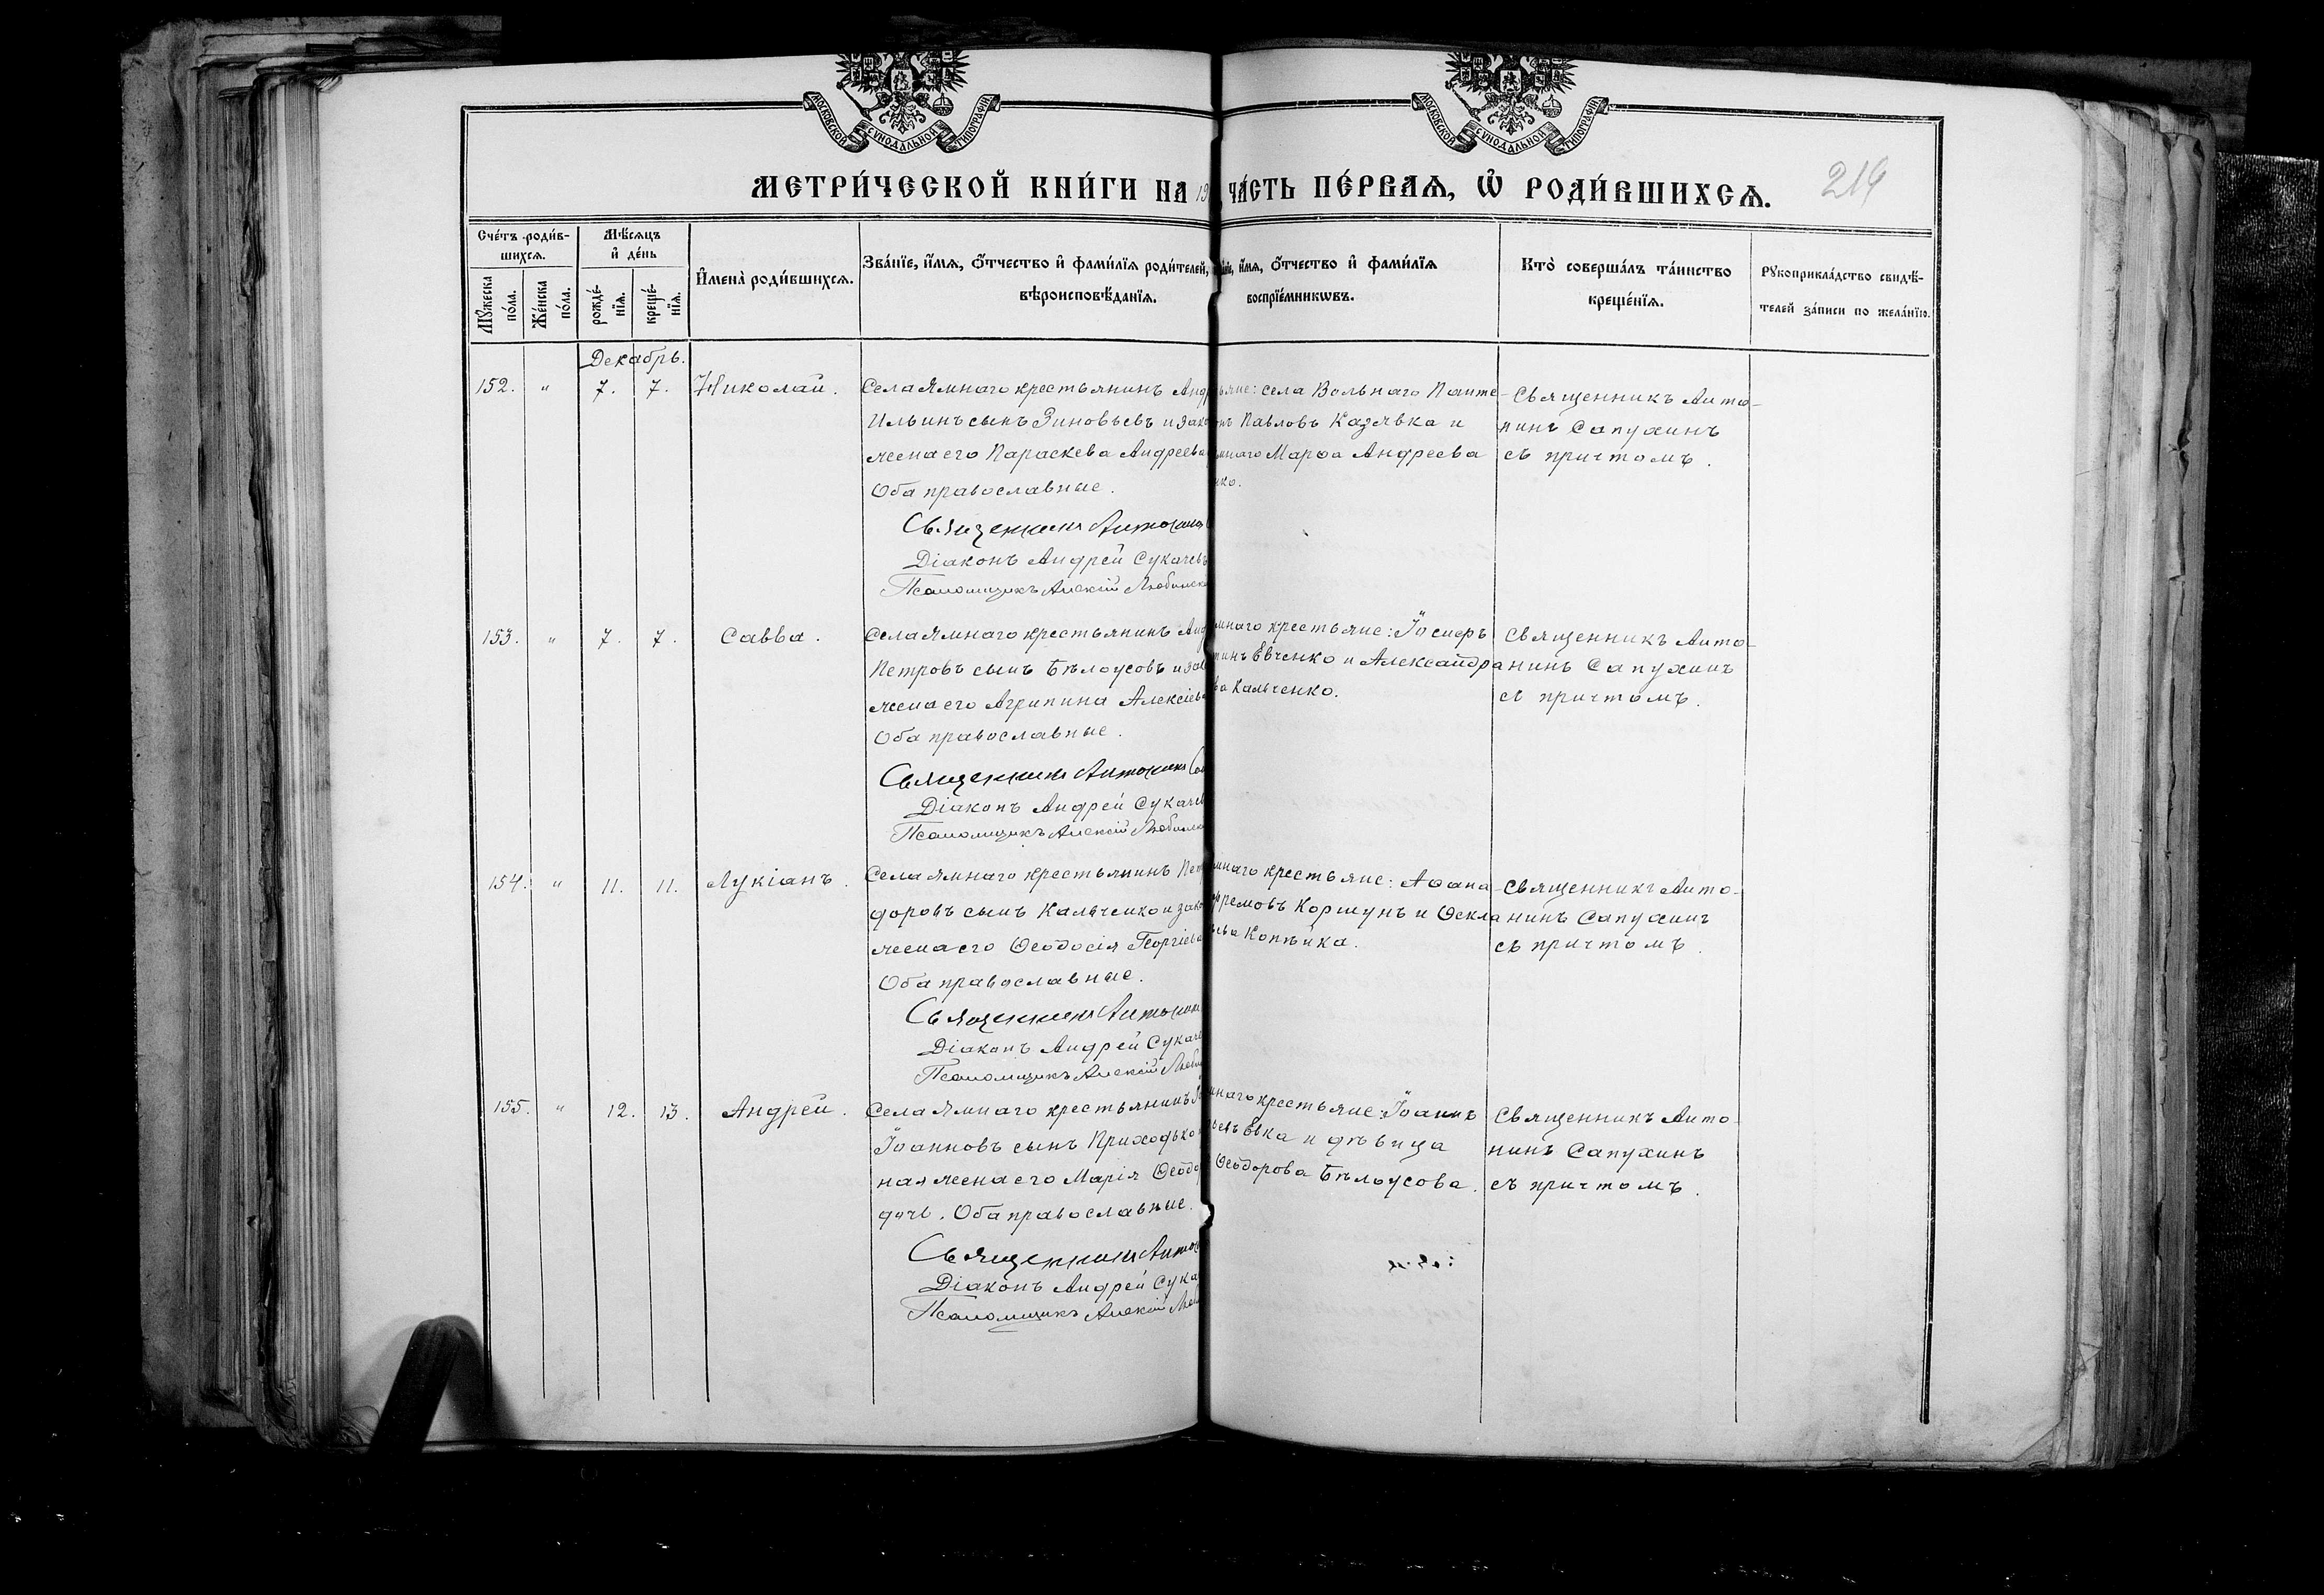 МОСКОВСКОЙ СѴНОДАЛЬНОЙ ТИПОГРАФІИ
МОСКОВСКОЙ СѴНОДАЛЬНОЙ ТИПОГРАФІИ
МЕТРИ́ЧЕСКОЙ КНИ́ГИ НА 19 ЧА́СТЬ ПЕ́РВАѦ, Ѽ РОДИ́ВШИХСѦ.
Сче́тъ роди́в-
шихсѧ.
Мѣ́сѧцъ
и҆ де́нь
Мꙋ́жеска
по́ла.
Же́нска
по́ла.
рожде́-
нїѧ.
креще́-
нїѧ.
И҆мена̀ роди́вшихсѧ.
Зва́нїе, и҆́мѧ, ѻ҆́тчество и҆ фами́лїѧ роди́телей,
вѣроисповѣ́данїѧ.
и҆́мѧ, ѻ҆́тчество и҆ фами́лїѧ
воспрїе́мникѡвъ.
Кто̀ соверша́лъ та́инство
креще́нїѧ.
Рꙋкоприкла́дство свидѣ́-
телей за́писи по жела́нїю.
Декабрь.
152. " 7. 7. Николай.
Села Ямнаго крестьянинъ Анд
Ильинъ сынъ Зиновьевъ и зако
жена его Параскева Андреева
Оба православные.
Священникъ Антонинъ
Діаконъ Андрей Сукачевъ
Псаломщикъ Алексій Любимск
ьяне: села Вольнаго Панте-
онъ Павловъ Казявка и
мнаго Марѳа Андреева
нко.
Священникъ Анто-
нинъ Сапухинъ
съ причтомъ.
153. " 7. 7. Савва.
Села Ямнаго крестьянинъ Анд
Петровъ сынъ Бѣлоусовъ и зак
жена его Агрипина Алексіева
Оба православные.
Священникъ Антонинъ Са
Діаконъ Андрей Сукачев
Псаломщикъ Алексій Любимс
мнаго крестьяне: Іосифъ
тинъ Евченко и Александра
ва Кальченко.
Священникъ Анто-
нинъ Сапухинъ
съ причтомъ.
154. " 11. 11. Лукіанъ.
Села Ямнаго крестьянинъ Пет
доровъ сынъ Кальченко и зако
жена его Ѳеодосія Георгіева
Оба православные.
Священникъ Антонин
Діаконъ Андрей Сукаче
Псаломщикъ Алексій Люби
мнаго крестьяне: Аѳана-
фремовъ Коршунъ и Ѳекла
ьева Копѣйка.
Священникъ Анто-
нинъ Сапухинъ
съ причтомъ.
155. " 12. 13. Андрей.
Села Ямнаго крестьянинъ
Іоанновъ сынъ Приходько
ная жена его Марія Ѳеодо
дичъ. Оба православные.
Священникъ Антон
Діаконъ Андрей Сука
Псаломщикъ Алексій Люб
мнаго крестьяне: Іоаннъ
ьевъ Евка и дѣвица
Ѳеодорова Бѣлоусова.
Священникъ Анто-
нинъ Сапухинъ
съ причтомъ.